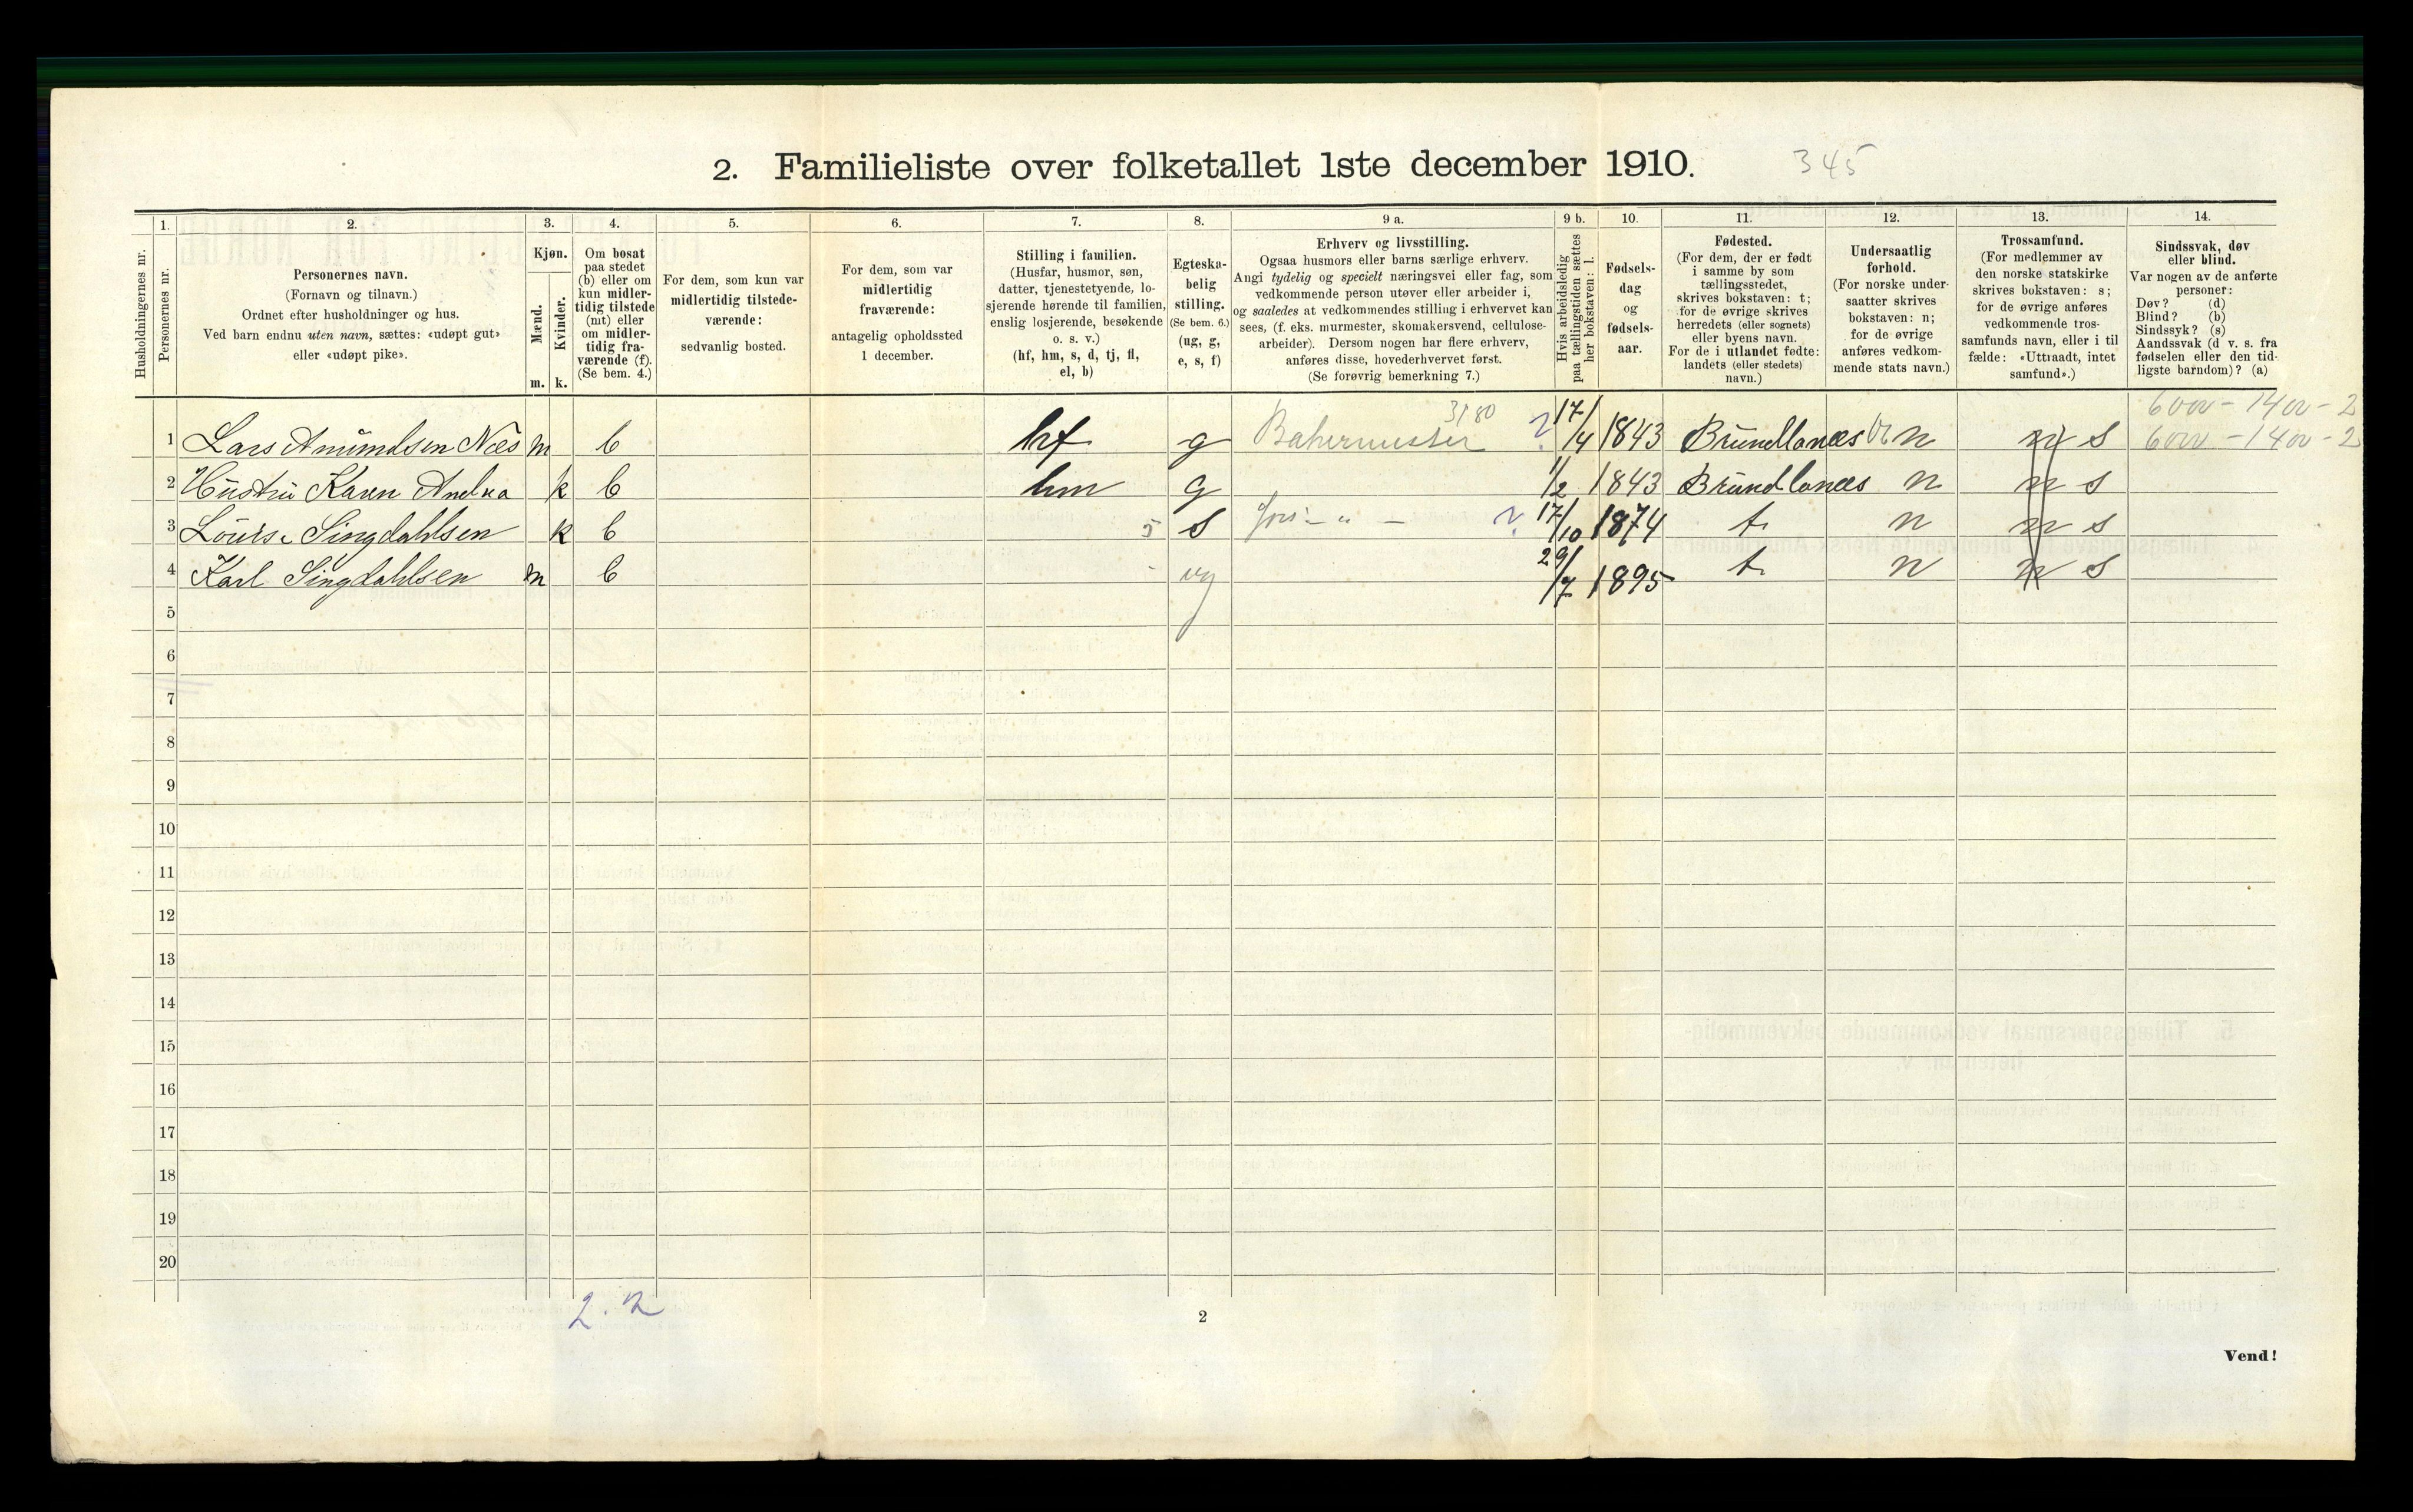 2. Familieliste over folketallet 1ste december 1910. 345
Husholdningernes nr.
1.
Personernes nr.
2.
Personernes navn.
(Fornavn og tilnavn.)
Ordnet efter husholdninger og hus.
Ved barn endnu uten navn, sættes: «udøpt gut»
eller «udøpt pike».
3.
Kjøn.
Mænd.
Kvinder.
m. k.
4.
Om bosat
paa stedet
(b) eller om
kun midler-
tidig tilstede
(mt) eller
om midler-
tidig fra-
værende (f).
(Se bem. 4.)
5.
For dem, som kun var
midlertidig tilstede-
værende:
sedvanlig bosted.
6.
For dem, som var
midlertidig
fraværende:
antagelig opholdssted
1 december.
7.
Stilling i familien.
(Husfar, husmor, søn,
datter, tjenestetyende, lo-
sjerende hørende til familien,
enslig losjerende, besøkende
o. s. v.)
(hf, hm, s, d, tj, fl,
el, b)
8.
Egteska-
belig
stilling.
(Se bem. 6.)
(ug, g,
e, s, f)
9 a.
Erhverv og livsstilling.
Ogsaa husmors eller barns særlige erhverv.
Angi tydelig og specielt næringsvei eller fag, som
vedkommende person utøver eller arbeider i,
og saaledes at vedkommendes stilling i erhvervet kan
sees, (f. eks. murmester, skomakersvend, cellulose-
arbeider). Dersom nogen har flere erhverv,
anføres disse, hovederhvervet først.
(Se forøvrig bemerkning 7.)
9 b.
Hvis arbeidsledig
paa tællingstiden sættes
her bokstaven: l.
10.
Fødsels-
dag
og
fødsels-
aar.
11.
Fødested.
(For dem, der er født
i samme by som
tællingsstedet,
skrives bokstaven: t;
for de øvrige skrives
herredets (eller sognets)
eller byens navn.
For de i utlandet fødte:
landets (eller stedets)
navn.)
12.
Undersaatlig
forhold.
(For norske under-
saatter skrives
bokstaven: n;
for de øvrige
anføres vedkom-
mende stats navn.)
13.
Trossamfund.
(For medlemmer av
den norske statskirke
skrives bokstaven: s;
for de øvrige anføres
vedkommende tros-
samfunds navn, eller i til
fælde: «Uttraadt, intet
samfund».)
14.
Sindssvak, døv
eller blind.
Var nogen av de anførte
personer:
Døv? (d)
Blind? (b)
Sindssyk? (s)
Aandssvak (d v. s. fra
fødselen eller den tid-
ligste barndom)? (a)
3180 6000 - 1400 - 2
1 Lars Amundsen Næs m b hf g Bakermester ? 17/4 1843 Brundlanæs n n s 6000 - 1400 - 2
2 Hustru Karen Andrea k b hm g 1/2 1843 Brundlanæs n n s
3 Louise Singdahlsen k b 5 s - " - ? 17/10 1874 t. n n s
4 Karl Singdahlsen m b ug 29/7 1895 t. n n s
5
6
7
8
9
10
11
12
13
14
15
16
17
18
19
20
2
Vend!